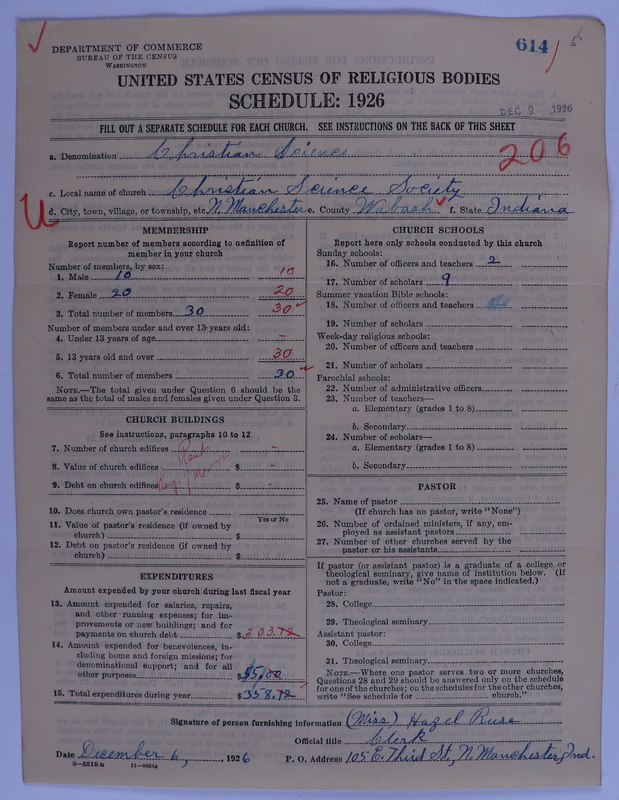 614
5
DEPARTMENT OF COMMERCE
BUREAU OF THE CENSUS
WASHINGTON
UNITED STATES CENSUS OF RELIGIOUS BODIES
SCHEDULE: 1926
DEC 9 1926
FILL OUT A SEPARATE SCHEDULE FOR EACH CHURCH. SEE INSTRUCTIONS ON THE BACK OF THIS SHEET
a. Denomination Christian Science
206
c. Local name of church Christian Science Society
d. City, town, village, or township, etc. N. Manchester e. County Wabash f. State Indiana
MEMBERSHIP
Report number of members according to definition of
member in your church
Number of members, by sex:
1. Male 10 10
2. Female 20 20
3. Total number of members 30 30
Number of members under and over 13 years old:
4. Under 13 years of age –
5. 13 years old and over 30
6. Total number of members 30
NOTE.—The total given under Question 6 should be the
same as the total of males and females given under Question 3.
CHURCH BUILDINGS
See instructions, paragraphs 10 to 12
7. Number of church edifices Rent -
8. Value of church edifices $ -
9. Debt on church edifices $ -
10. Does church own pastor's residence
Yes or No
11. Value of pastor's residence (if owned by
church) $
12. Debt on pastor's residence (if owned by
church) $
EXPENDITURES
Amount expended by your church during last fiscal year
13. Amount expended for salaries, repairs,
and other running expenses; for im-
provements or new buildings; and for
payments on church debt $303.72
14. Amount expended for benevolences, in-
cluding home and foreign missions; for
denominational support; and for all
other purposes $55.00
15. Total expenditures during year $358.72
CHURCH SCHOOLS
Report here only schools conducted by this church
Sunday schools:
16. Number of officers and teachers 2
17. Number of scholars 9
Summer vacation Bible schools:
18. Number of officers and teachers
19. Number of scholars
Week-day religious schools:
20. Number of officers and teachers
21. Number of scholars
Parochial schools:
22. Number of administrative officers
23. Number of teachers—
a. Elementary (grades 1 to 8)
b. Secondary
24. Number of scholars—
a. Elementary (grades 1 to 8)
b. Secondary
PASTOR
25. Name of pastor
(If church has no pastor, write "None")
26. Number of ordained ministers, if any, em-
ployed as assistant pastors
27. Number of other churches served by the
pastor or his assistants
If pastor (or assistant pastor) is a graduate of a college or
theological seminary, give name of institution below. (If
not a graduate, write "No" in the space indicated.)
Pastor:
28. College
29. Theological seminary
Assistant pastor:
30. College
31. Theological seminary
NOTE.—Where one pastor serves two or more churches,
Questions 28 and 29 should be answered only on the schedule
for one of the churches; on the schedules for the other churches,
write "See schedule for church."
Signature of person furnishing information (Miss) Hazel
Official title Clerk
Date December 6, 1926 P. O. Address 105 E. Third St., N. Manchester, Ind.
8—5518a 11—9051a